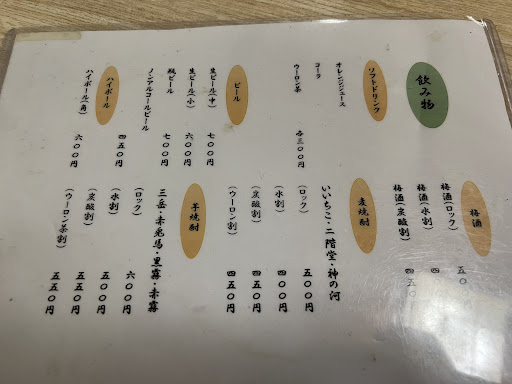 飲み物
ソフトドリンク
オレンジジュース
コーラ
ウーロン茶
各三〇〇円
ビール
生ビール(中) 七〇〇円
生ビール(小) 六〇〇円
瓶ビール 七〇〇円
ノンアルコールビール 四五〇円
ハイボール
ハイボール(角) 六〇〇円
梅酒
梅酒(ロック) 五〇
梅酒(水割) 四五
梅酒(炭酸割) 四五〇円
麦焼酎
いいちこ・二階堂・神の河
(ロック) 五〇〇円
(水割) 四〇〇円
(炭酸割) 四五〇円
(ウーロン割) 四五〇円
芋焼酎
三岳・赤兎馬・黒霧・赤霧
(ロック) 六〇〇円
(水割) 五〇〇円
(炭酸割) 五五〇円
(ウーロン茶割) 五五〇円